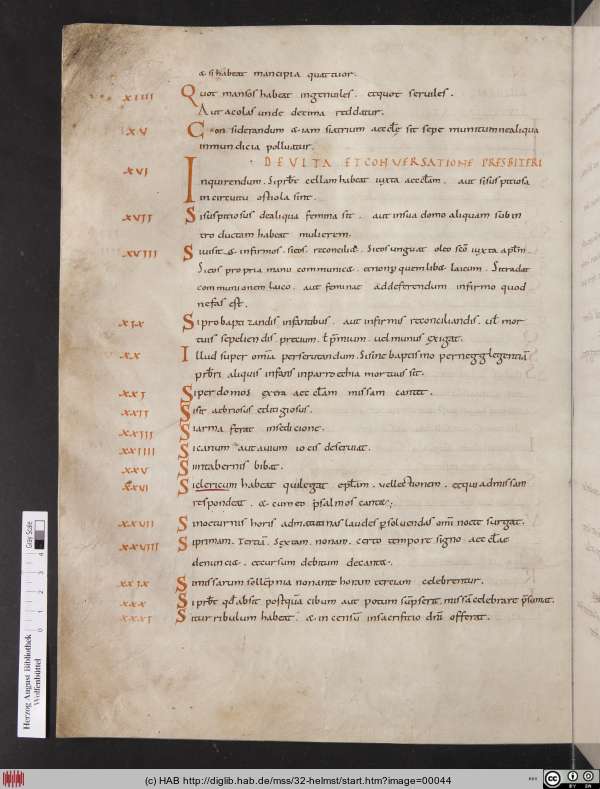 & si habeat mancipia quattuor.
XIIII Quot mansos habeat ingenuiles. et quot seruiles.
Aut acolas unde decima reddatur.
XV Considerandum & iam si atrium aeccłę sit sepe munitum ne aliqua
inmundicia polluatur.
DE UITA ET CONUERSATIONE PRESBITERI
XVI Inquirendum. Si prbt cellam habeat iuxta aeccłam. aut si suspitiosa
in circuitu ostiola sint.
XVII Si suspitiosus de aliqua femina sit. aut in sua domo aliquam subin
troductam habeat mulierem.
XVIII Si uisit& infirmos. si eos reconcili&. Si eos unguat oleo sco iuxta aplm.
Si eos propria manu communic&. et non per quemlib& laicum. Si tradat
communionem laico. aut feminae ad deferendum infirmo quod
nefas est.
XIX Si pro baptizandis infantibus. aut infirmis reconciliandis. ul mor
tuis sepeliendis. precium. ł pmium. uel munus exigat.
XX Illud super omia perscrutandum. Si sine baptismo per negglegentiã
prbri aliquis infans in parrochia mortuus sit.
XXI Si per domos extra aeccłam missam cantet.
XXII Si sit aebriosus et litigiosus.
XXIII Si arma ferat in seditione.
XXIIII Si canum aut auium iocis deseruiat.
XXV Si in tabernis bibat.
XXVI Si clericum habeat qui legat epłam. uel lectionem. et qui ad missam
respondeat. & cum eo psalmos cant&;
XXVII Si nocturnis horis ad matutinas laudes psoluendas omi nocte surgat.
XXVIII Si primam. Tertiã. Sextam. nonam. certo tempore signo aeccłae
denunci&. et cursum debitum decant&.
XXIX Si missarum sollępnia non ante horam terciam celebrentur.
XXX Si prbt qd absit postquã cibum aut potum supserit missã celebrare psumat.
XXXI Si turribulum habeat. & incensũ in sacrifitio dni offerat.
Herzog August Bibliothek
Wolfenbüttel
Gray Scale
(c) HAB http://diglib.hab.de/mss/32-helmst/start.htm?image=00044
BY SA